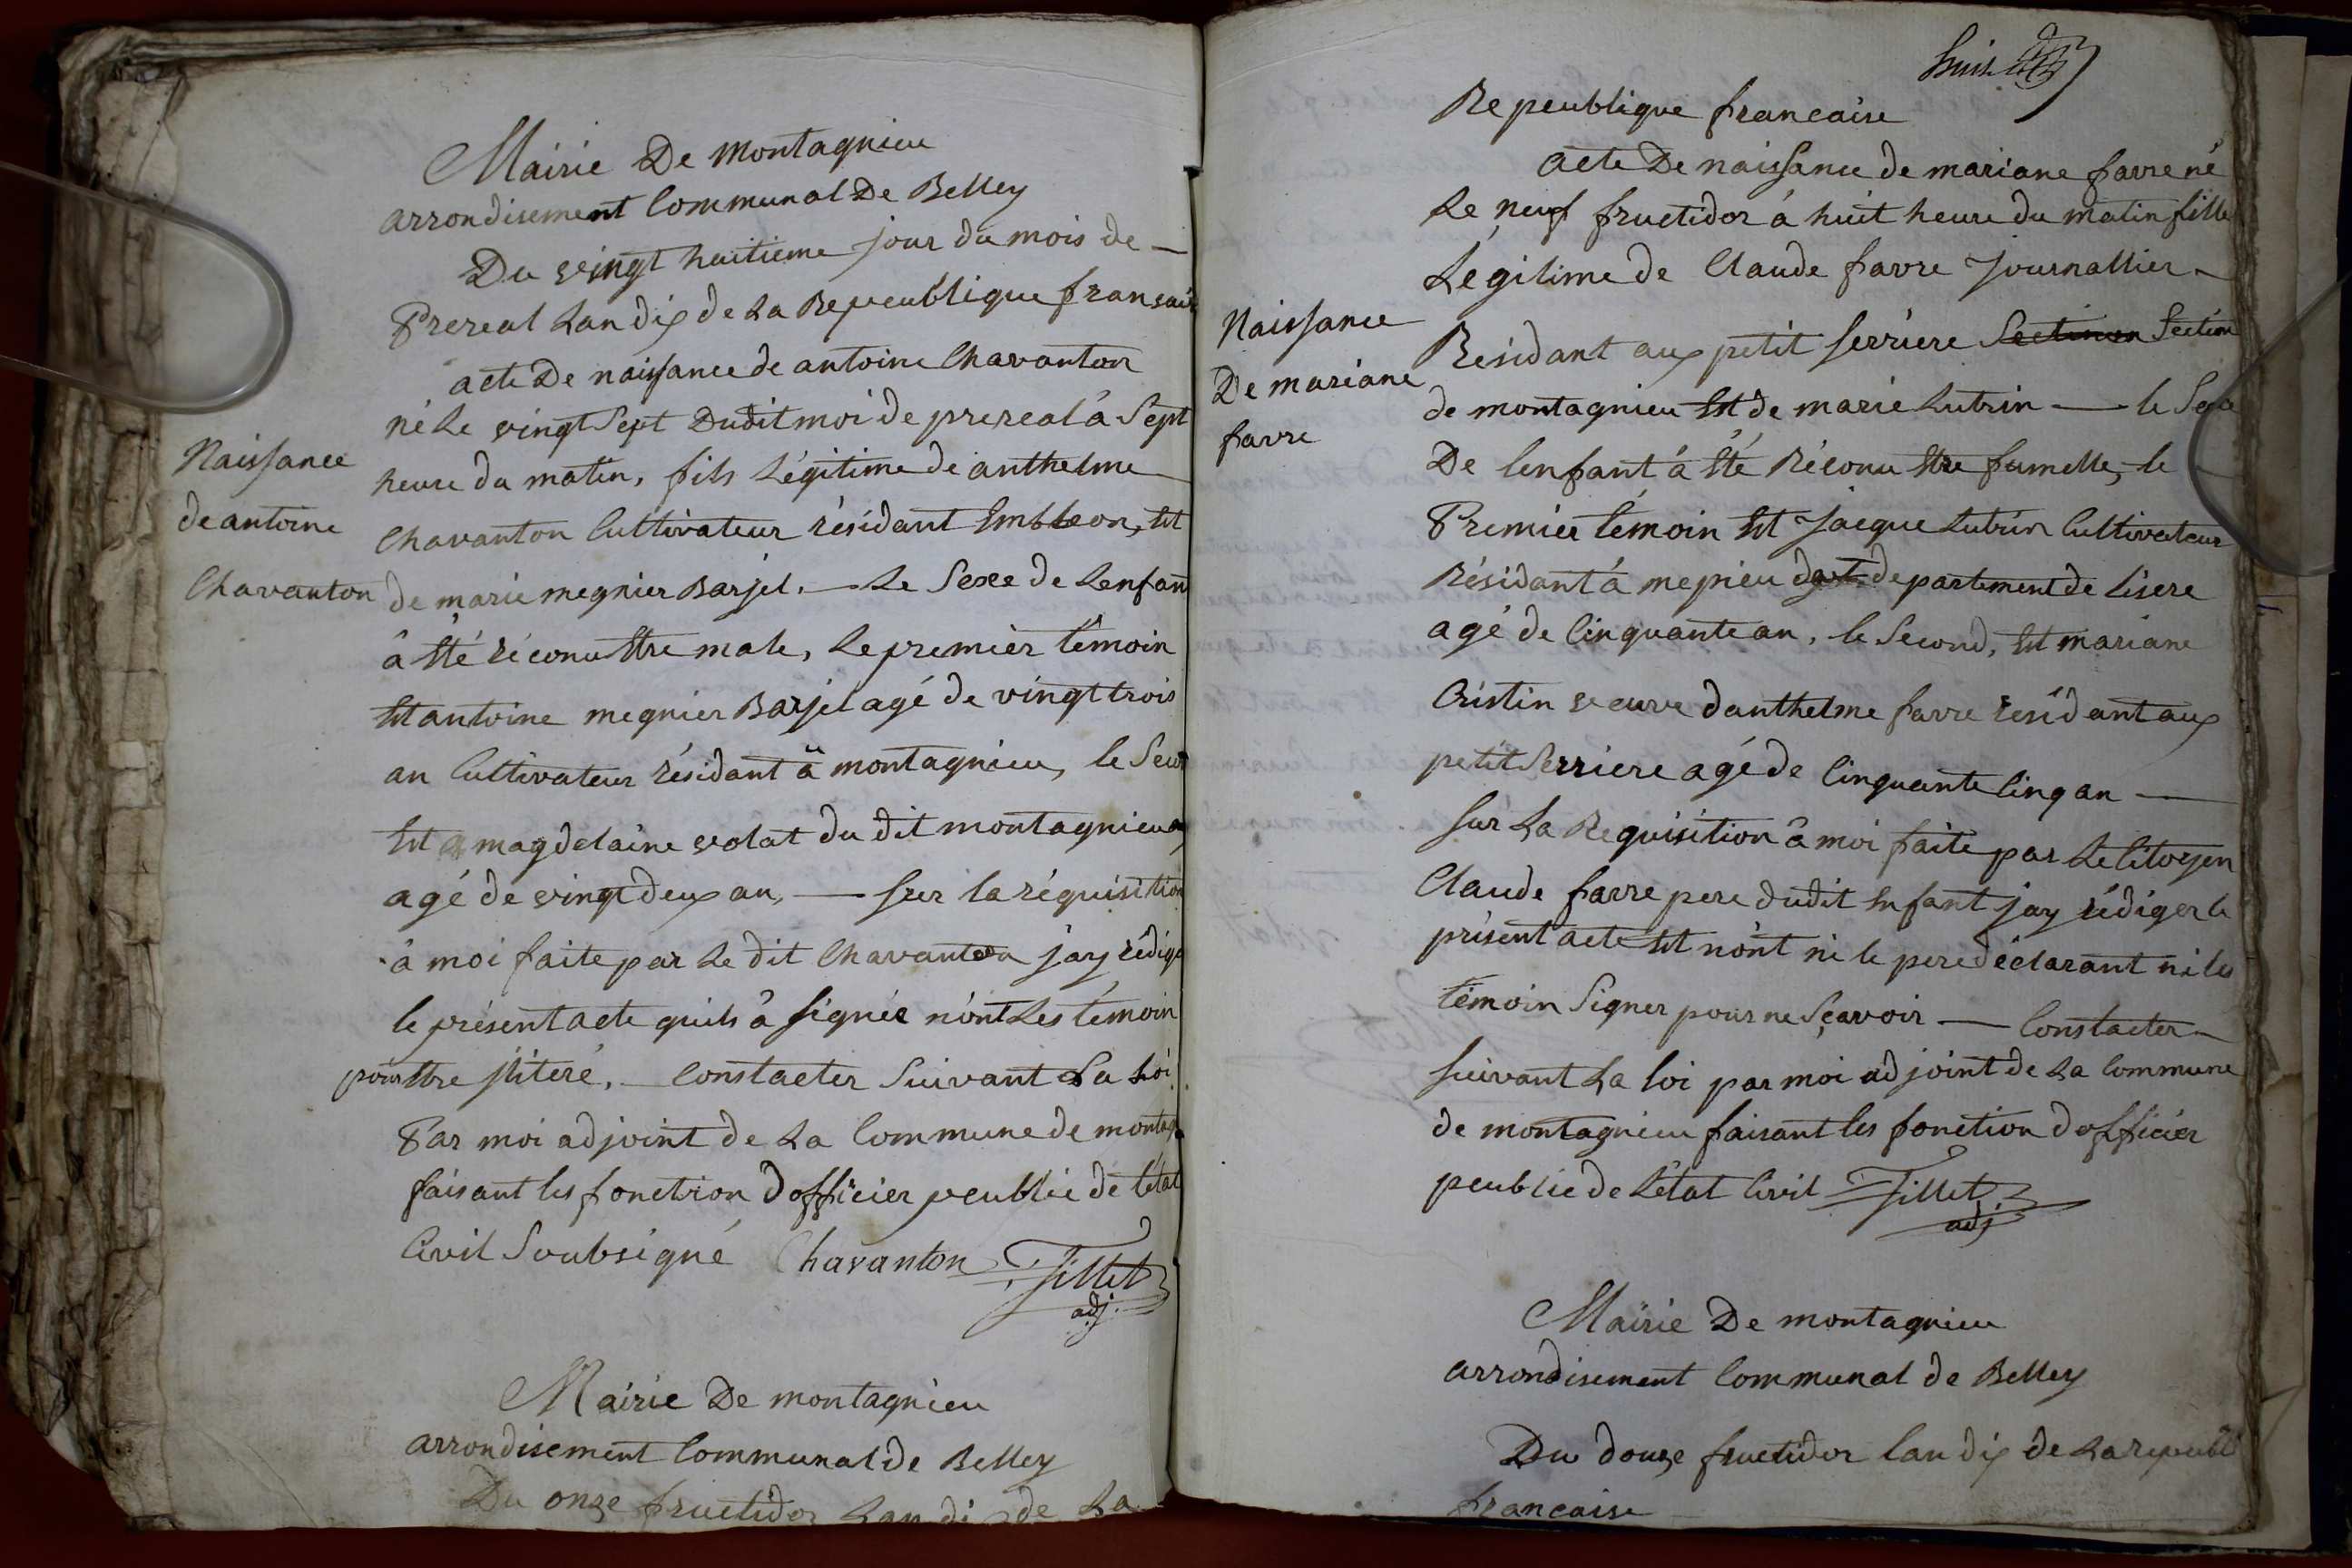 Mairie De montagnieu
arrondisement Communal De Belley
Du veingt huitieme jour du mois de
Prereal Lan dix de La Repeublique fransais
acte De naissance de antoine Chavanton
né Le vingt Sept Dudit moi de prereal à Sept
heure du matin, fils Légitime de anthelme
Chavanton Cultivateur résidant Embleon, Et
de marie megnier Barjel. Le Sexe de Lenfan
à Eté réconu Etre male, Le premier témoin
Et antoine megnier Barjel agé de vingt trois
an Cultivateur résidant à montagnieu, le Seco
Et magdelaine volat du dit montagnieu
agé de vingt deux an, Sur la réquisition
à moi faite par Le dit Chavanton jay rédigé
le présent acte quils à signée n'ont Les témoin
pour Etre jliteré. Constacter Suivant La Loi
Par moi adjoint de La Commune de montag
faisant les fonction d officier peublic de l'état
Civil Soubsigné Chavanton Tillet
adj.
Naissance
de antoine
Chavanton
Mairie De montagnieu
arrondisement Communal de Belley
Du onze fructidor Lan dix de La
huit
Repeublique francaise
acte De naissance de mariane favre né
Le neuf fructidor à huit heure du matin fille
Légitime de Claude favre Journallier
Résidant aux petit serriere Section
de montagnieu Et de marie Lutrin le Sexe
De lenfant à Eté Réconu Etre fumelle, le
Premier témoin Et Jacque Lutrin Cultivateur
Résidant à mepieu departement de Lisere
agé de Cinquante an, le Second, Et mariane
Cristin veuve danthelme favre résidant aux
petit Serriere agé de Cinquante Cinq an
sur La Réquisition à moi faite par Le Citoyen
Claude favre pere dudit Enfant jay rédiger le
présent acte Et n'ont ni le pere déclarant ni les
témoin Signer pour ne Sçavoir Constacter
suivant La loi par moi adjoint de La Commune
de montagnieu faisant les fonction d officier
peublic de L'état Civil Tillet
adj
Naissance
De mariane
favre
Mairie De montagnieu
arrondisement Communal de Belley
Du douze fructidor lan dix de La repeubli
francaise